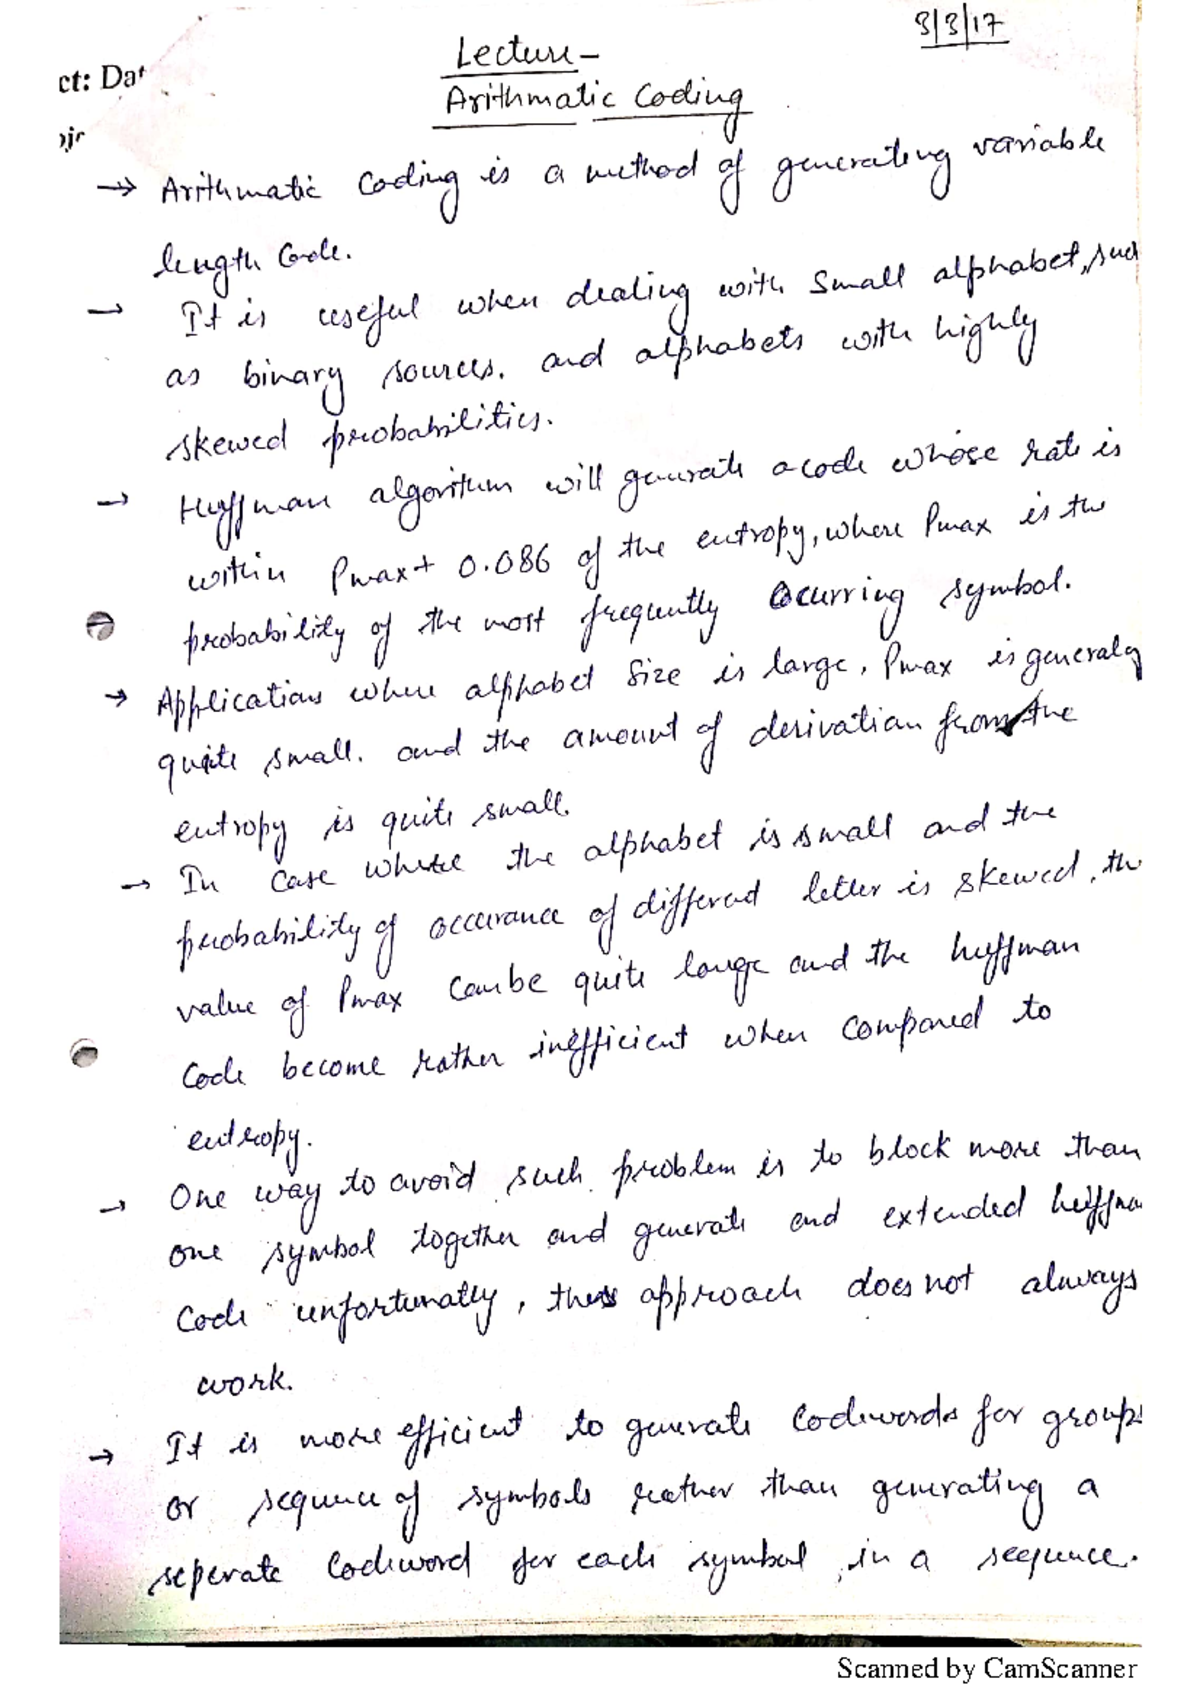 3/3/17
ct: Dat
Lecture -
Arithmatic Coding
→ Arithmatic Coding is a method of generating variable
length Code.
→ It is useful when dealing with small alphabet, such
as binary sources. and alphabets with highly
skewed probabilities.
→ Huffman algorithm will generate a code whose rate is
within Pmax + 0.086 of the entropy, where Pmax is the
probability of the most frequently Ocurring symbol.
→ Applications where alphabet size is large, Pmax is generaly
quite small. and the amount of derivation from the
entropy is quite small.
→ In case where the alphabet is small and the
probability of occurance of different letter is skewed, the
value of Pmax can be quite large and the huffman
Code become rather inefficient when compared to
entropy.
→ One way to avoid such problem is to block more than
one symbol together and generate and extended huffma
Code unfortunatly, this approach does not always
work.
→ It is more efficient to generate Codewords for groups
or sequence of symbols rather than generating a
seperate Codeword for each symbol in a seequence.
Scanned by CamScanner